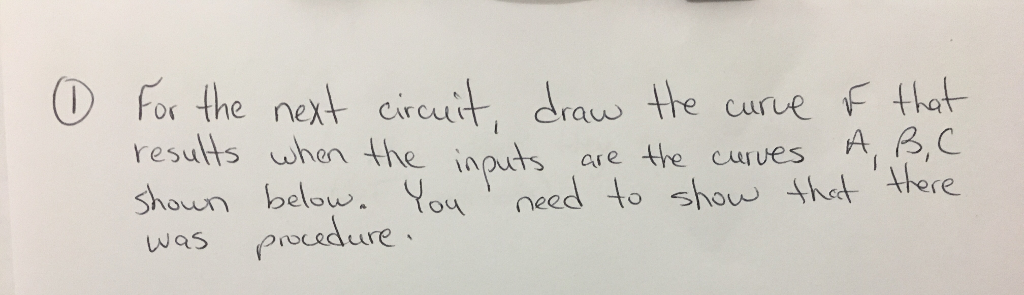 ① For the next circuit, draw the curve F that
results when the inputs are the curves A, B, C
shown below. You need to show that there
was procedure.